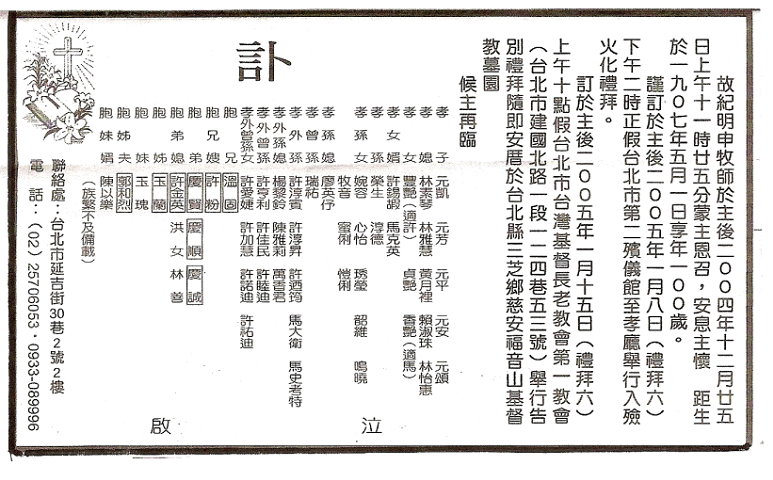 故紀明申牧師於主後二００四年十二月廿五
日上午十一時廿五分蒙主恩召，安息主懷　距生
於一九０七年五月一日享年一００歲。
謹訂於主後二００五年一月八日（禮拜六）
下午二時正假台北市第二殯儀館至孝廳舉行入殮
火化禮拜。
訂於主後二００五年一月十五日（禮拜六）
上午十點假台北市台灣基督長老教會第一教會
（台北市建國北路一段一二四巷五三號）舉行告
別禮拜隨即安厝於台北縣三芝鄉慈安福音山基督
教墓園
候主再臨
訃
孝子 元凱 元芳 元平 元安 元頌
孝媳 林素琴 林雅慧 黃月裡 賴淑珠 林怡惠
孝女 豐艷（適許） 貞艷 香艷（適馬）
孝女婿 許錫嘏 馬克英
孝孫 榮生 淳德
孝孫女 婉容 心怡 琇瑩 韶維 鳴曉
牧音 蜜俐 愷俐
孝孫媳 廖英仔
孝曾孫 瑞祐
孝外孫 許淳賓 許淳昇 許迺筠 馬大衛 馬史考特
孝外孫媳 楊黎鈴 陳雅莉 萬香君
孝外曾孫 許亨利 許佳民 許睦迪
孝外曾孫女 許愛婕 許加慧 許諾迪 許祐迪
胞兄 溫圖
胞兄嫂 許粉
胞弟 慶賢 慶順 慶誠
胞弟媳 許金英 洪女 林善
胞姊 玉蘭
胞妹 玉瑰
胞姊夫 郭和烈
胞妹婿 陳以樂
泣啟
（族繁不及備載）
聯絡處：台北市延吉街30巷2號2樓
電　話：（02）25706053．0933-089996